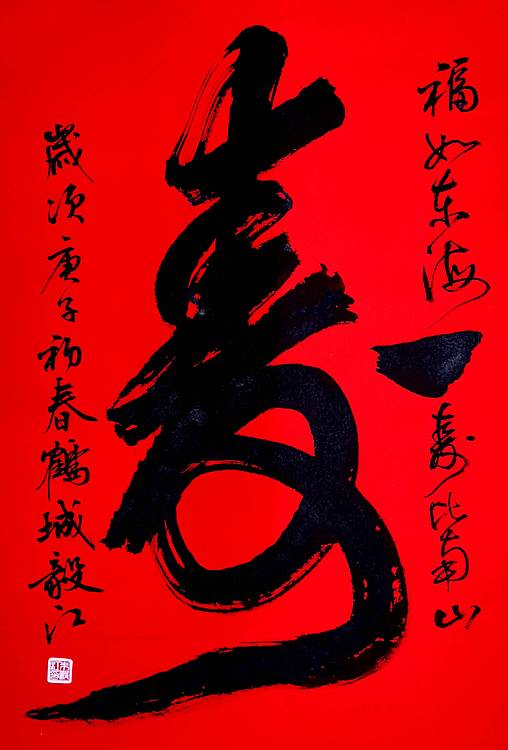 福如东海
寿比南山
寿
歲次庚子初春鶴城毅江